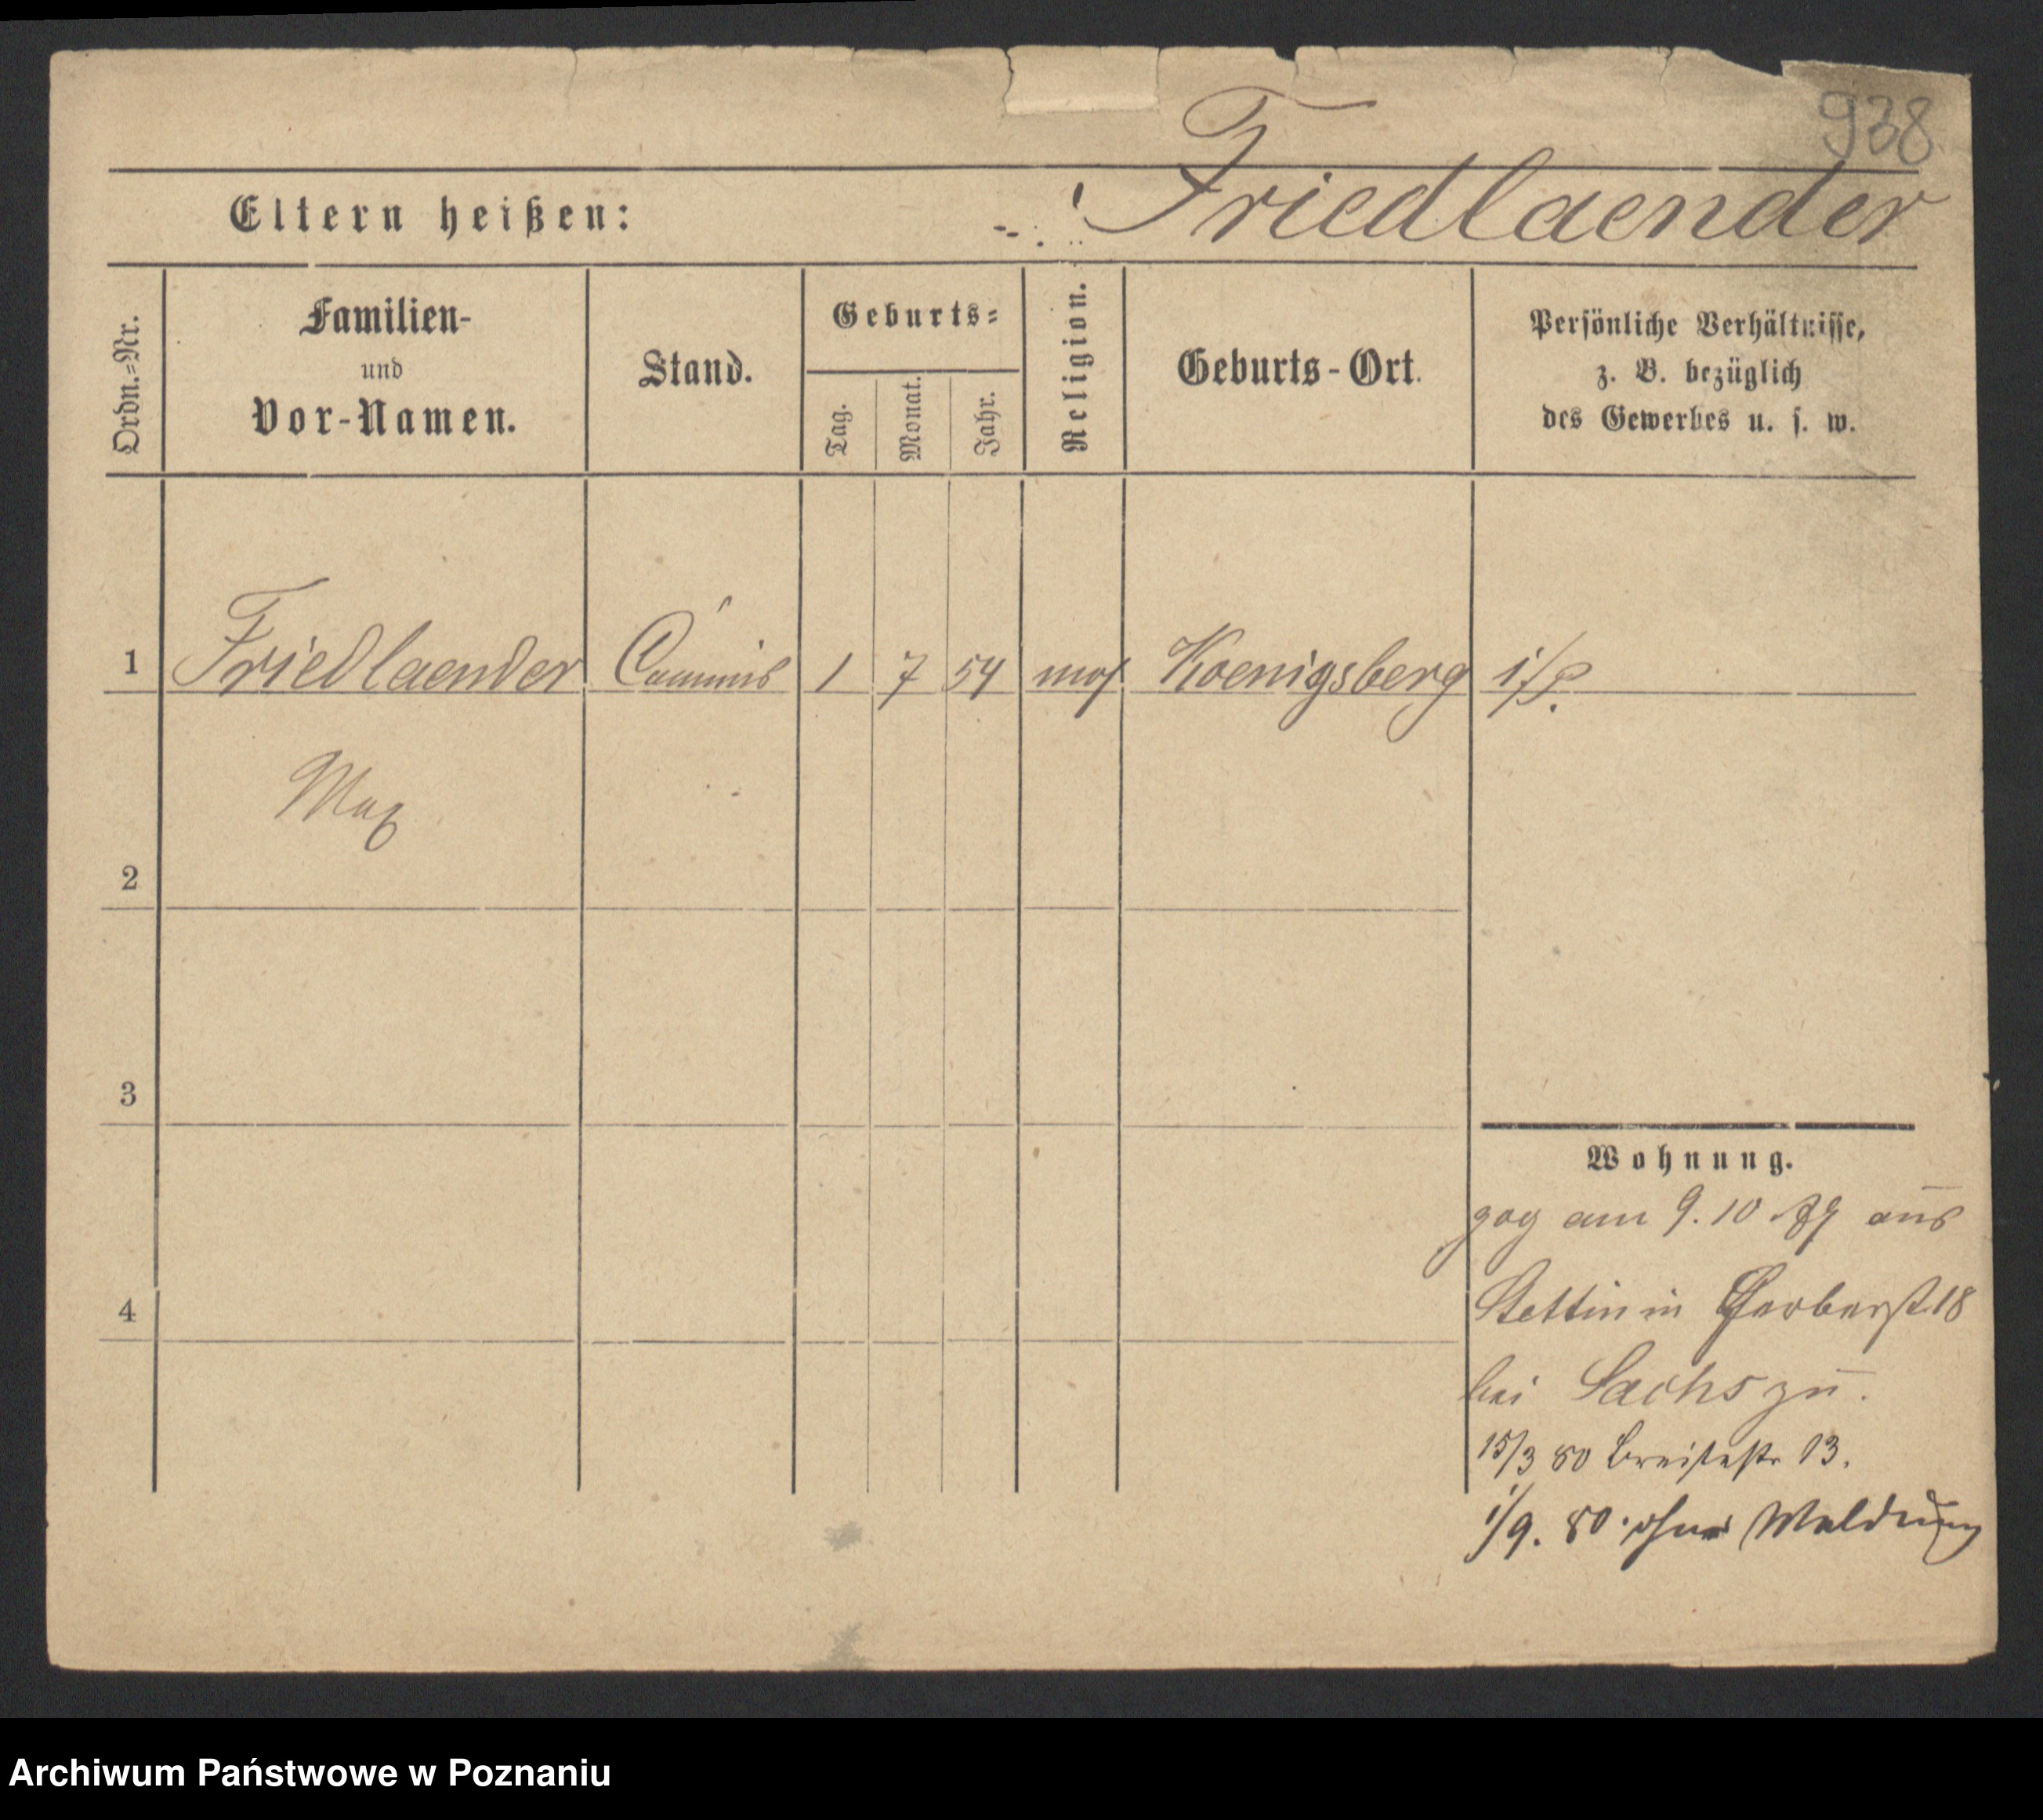 938
Eltern heißen: Friedlaender
Ordn.=Nr.
Familien-
und
Vor-Namen.
Stand.
Geburts=
Tag.
Monat.
Jahr.
Religion.
Geburts-Ort.
Persönliche Verhältnisse,
z. B. bezüglich
des Gewerbes u. s. w.
1 Friedlaender Commis 1 7 54 mos Koenigsberg i/P.
Max
2
3
4
Wohnung.
zog am 9.10 79 aus
Stettin in Gerberst 18
bei Sachs zu.
15/3 80 Breitestr 13.
1/9. 80. ohne Meldung
Archiwum Państwowe w Poznaniu